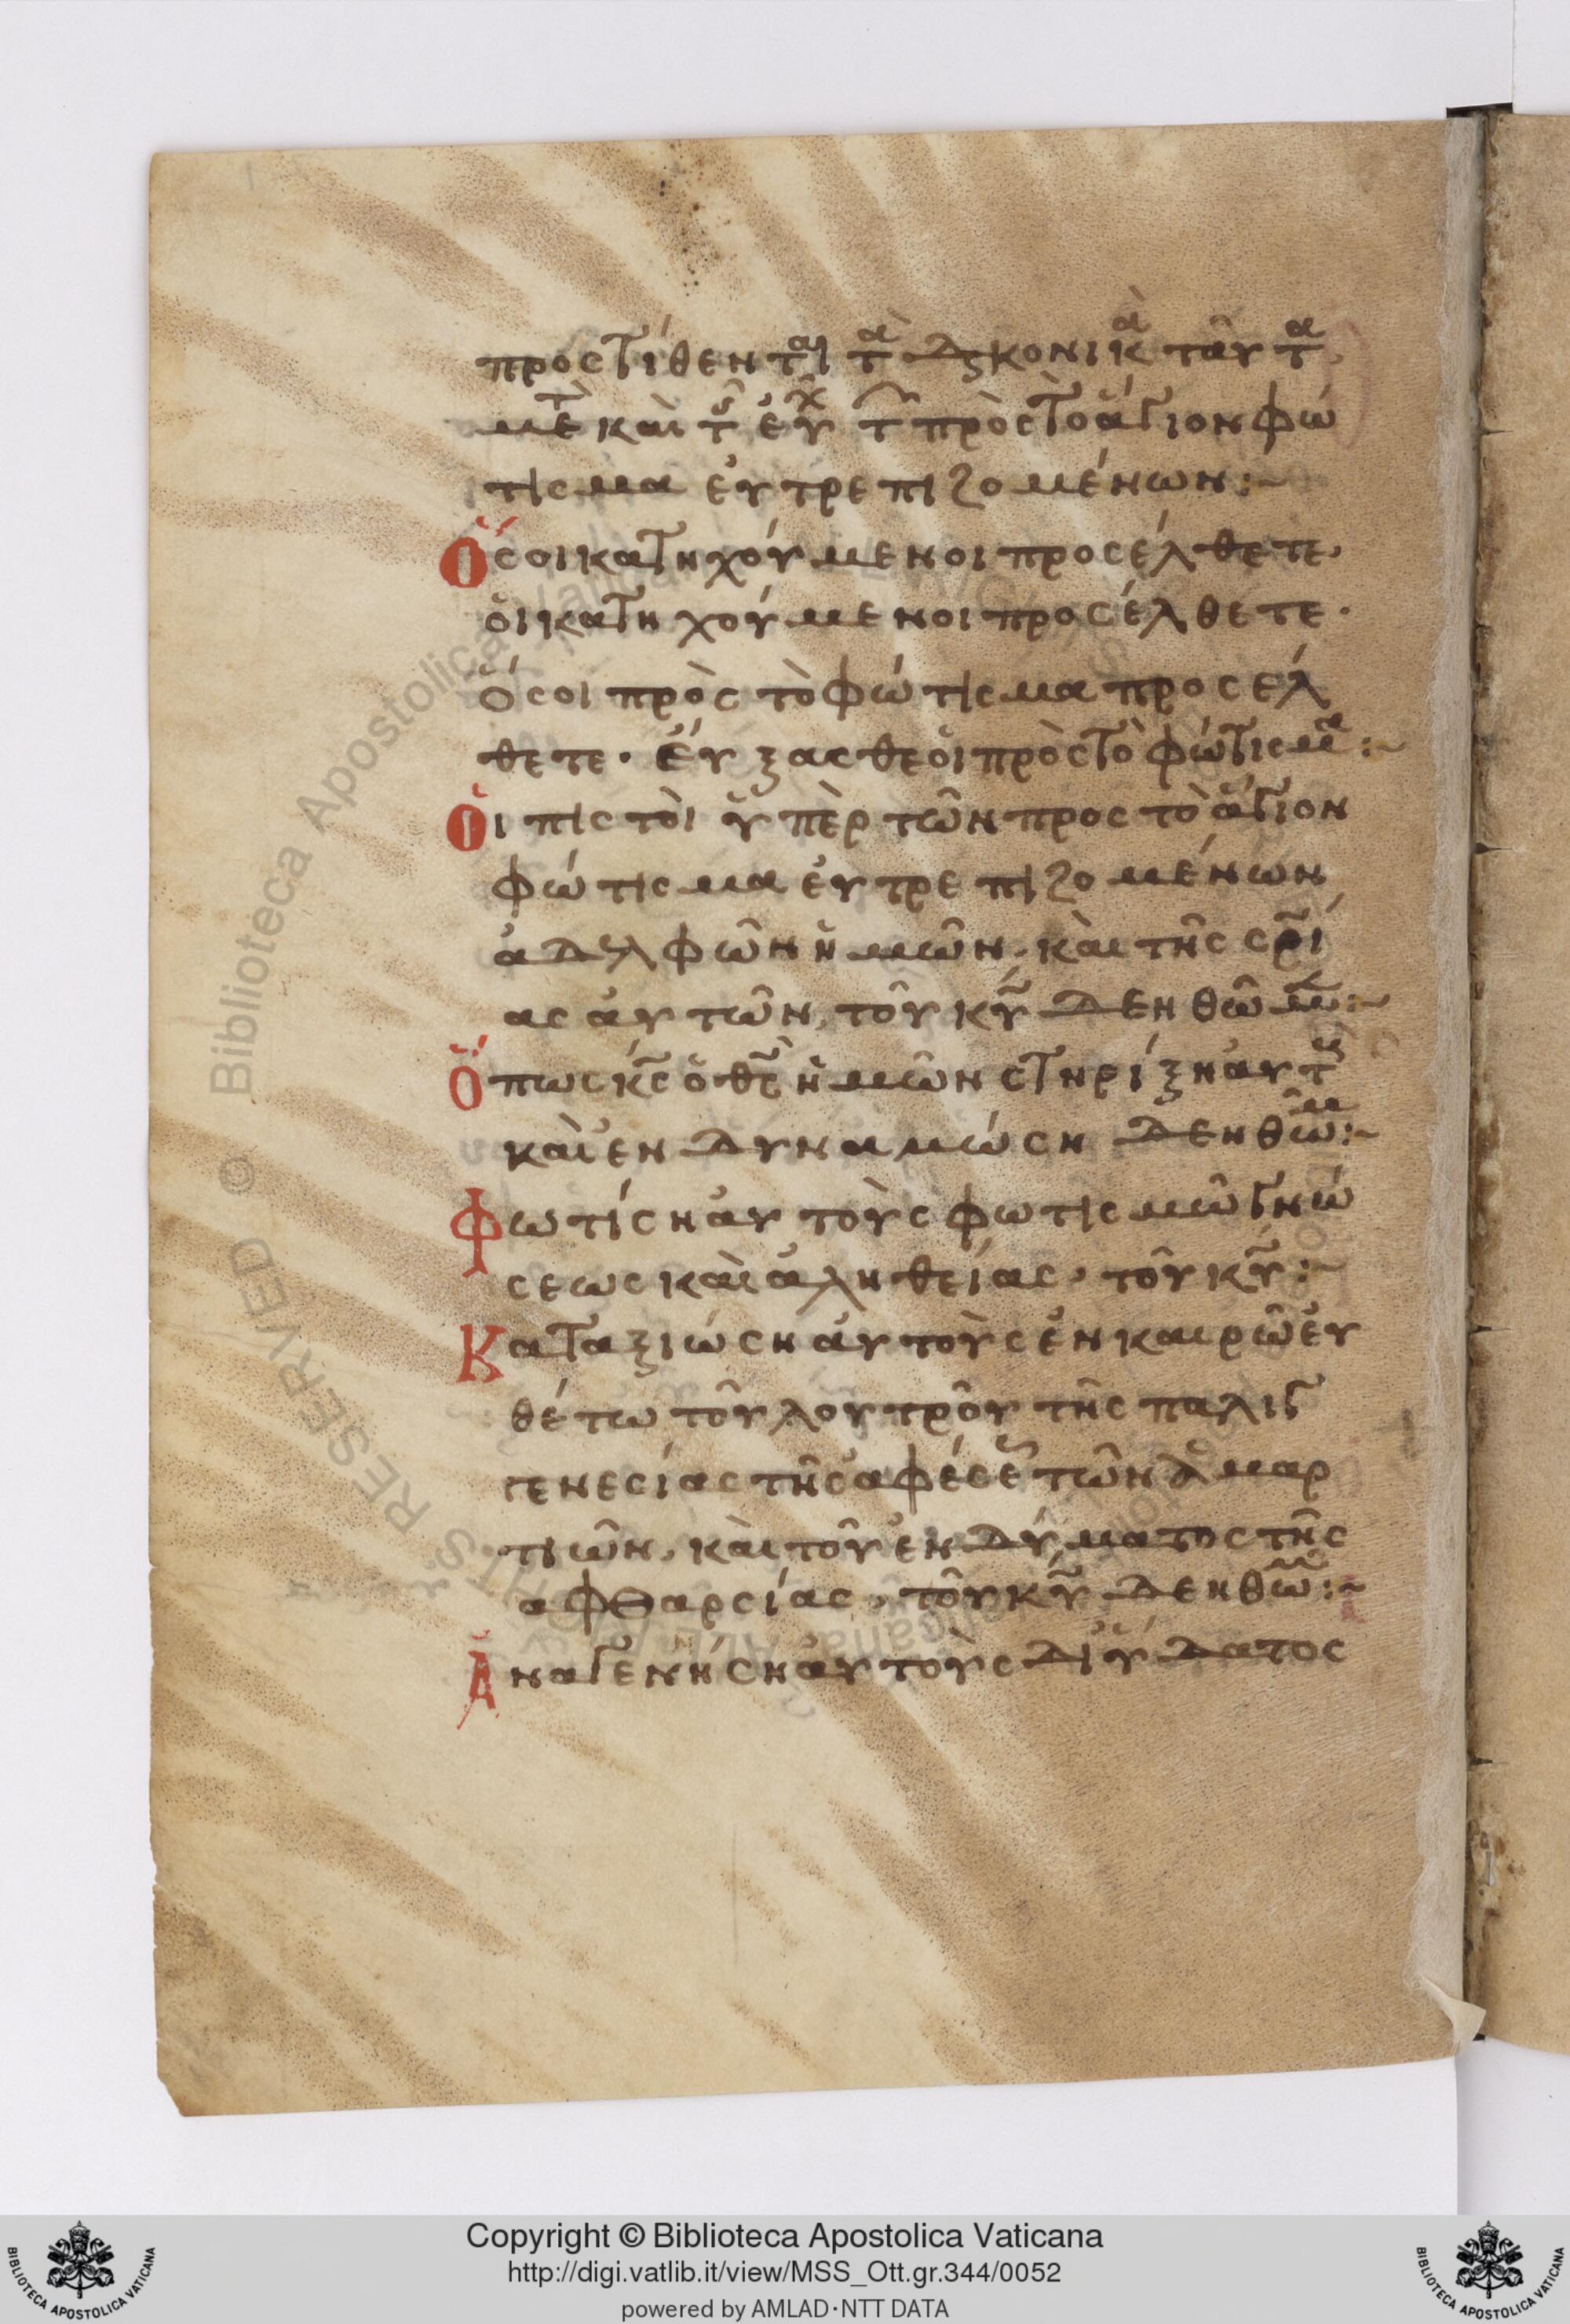 προστίθεντ(αι) τ(ὰ) δ(ια)κονικ(ὰ) ταῦτ(α)
μετ(ὰ) καὶ τ(ῆς) εὐχ(ῆς) τ(ῶν) πρὸς τὸ ἅγιον φώ
τισμα εὐτρεπιζομένων:~
Ὅσοι κατηχούμενοι προσέλθετε·
ὁι κατηχούμενοι προσέλθετε·
ὅσοι πρὸς τὸ φώτισμα προσέλ
θετε· ἔυξασθε ὁι πρὸς τὸ φώτισμα:~
Ὁι πιστὸι ὑπὲρ τῶν προς τὸ ἅγιον
φώτισμα ἐυτρεπιζομένων
ἀδελφῶν ἡμῶν, κὰι τῆς σρί
ας ἀυτῶν, τοῦ κῡ δεηθῶμ:~
Ὅπως κς ὁ θς ἡμῶν στηρίξη ἀυτ
κὰι ἐνδυναμώση δεηθῶμ:~
Φωτίση ἀυτοὺς φωτισμῶ γνώ
σεως κὰι ἀληθείας, τοῦ κῡ:~
Καταξιώση ἀυτοὺς ἐν καιρῶ ἐυ
θέτω τοῦ λουτροῦ τῆς παλιγ
γενεσίας τῆς ἀφέσε τῶν ἁμαρ
τιῶν, κὰι τοῦ ἐνδύματος τῆς
αφθαρσίας, τοῦ κῡ δεηθῶμ:~
Ἀναγενήση ἀυτοὺς δι ὕδατος
Copyright © Biblioteca Apostolica Vaticana
http://digi.vatlib.it/view/MSS_Ott.gr.344/0052
powered by AMLAD·NTT DATA
BIBLIOTECA APOSTOLICA VATICANA
BIBLIOTECA APOSTOLICA VATICANA